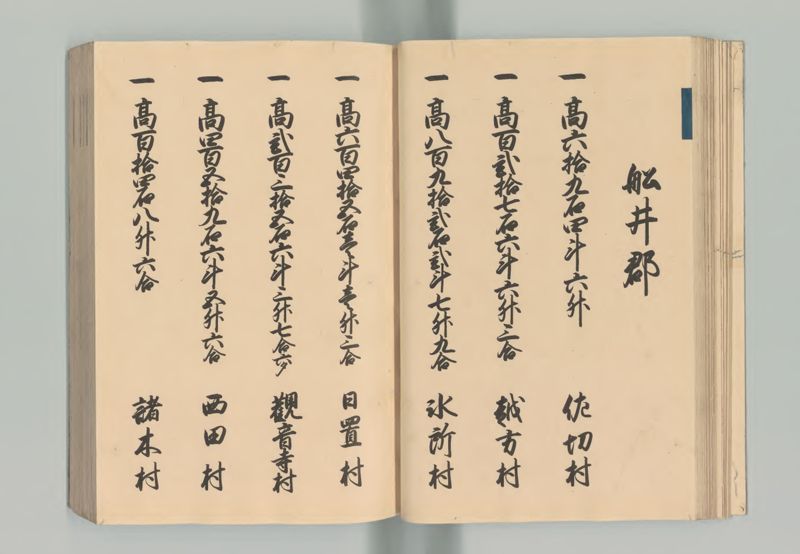 舩井郡
一 高六拾九石四斗六升 佐切村
一 高百弐拾七石六斗六升三合 越方村
一 高八百九拾弐石弐斗七升九合 氷所村
一 高六百四拾五石壱斗壱升三合 日置村
一 高弐百三拾五石六斗三升七合六夕 觀音寺村
一 高四百五拾九石六斗五升六合 西田村
一 高百拾四石八升六合 諸木村